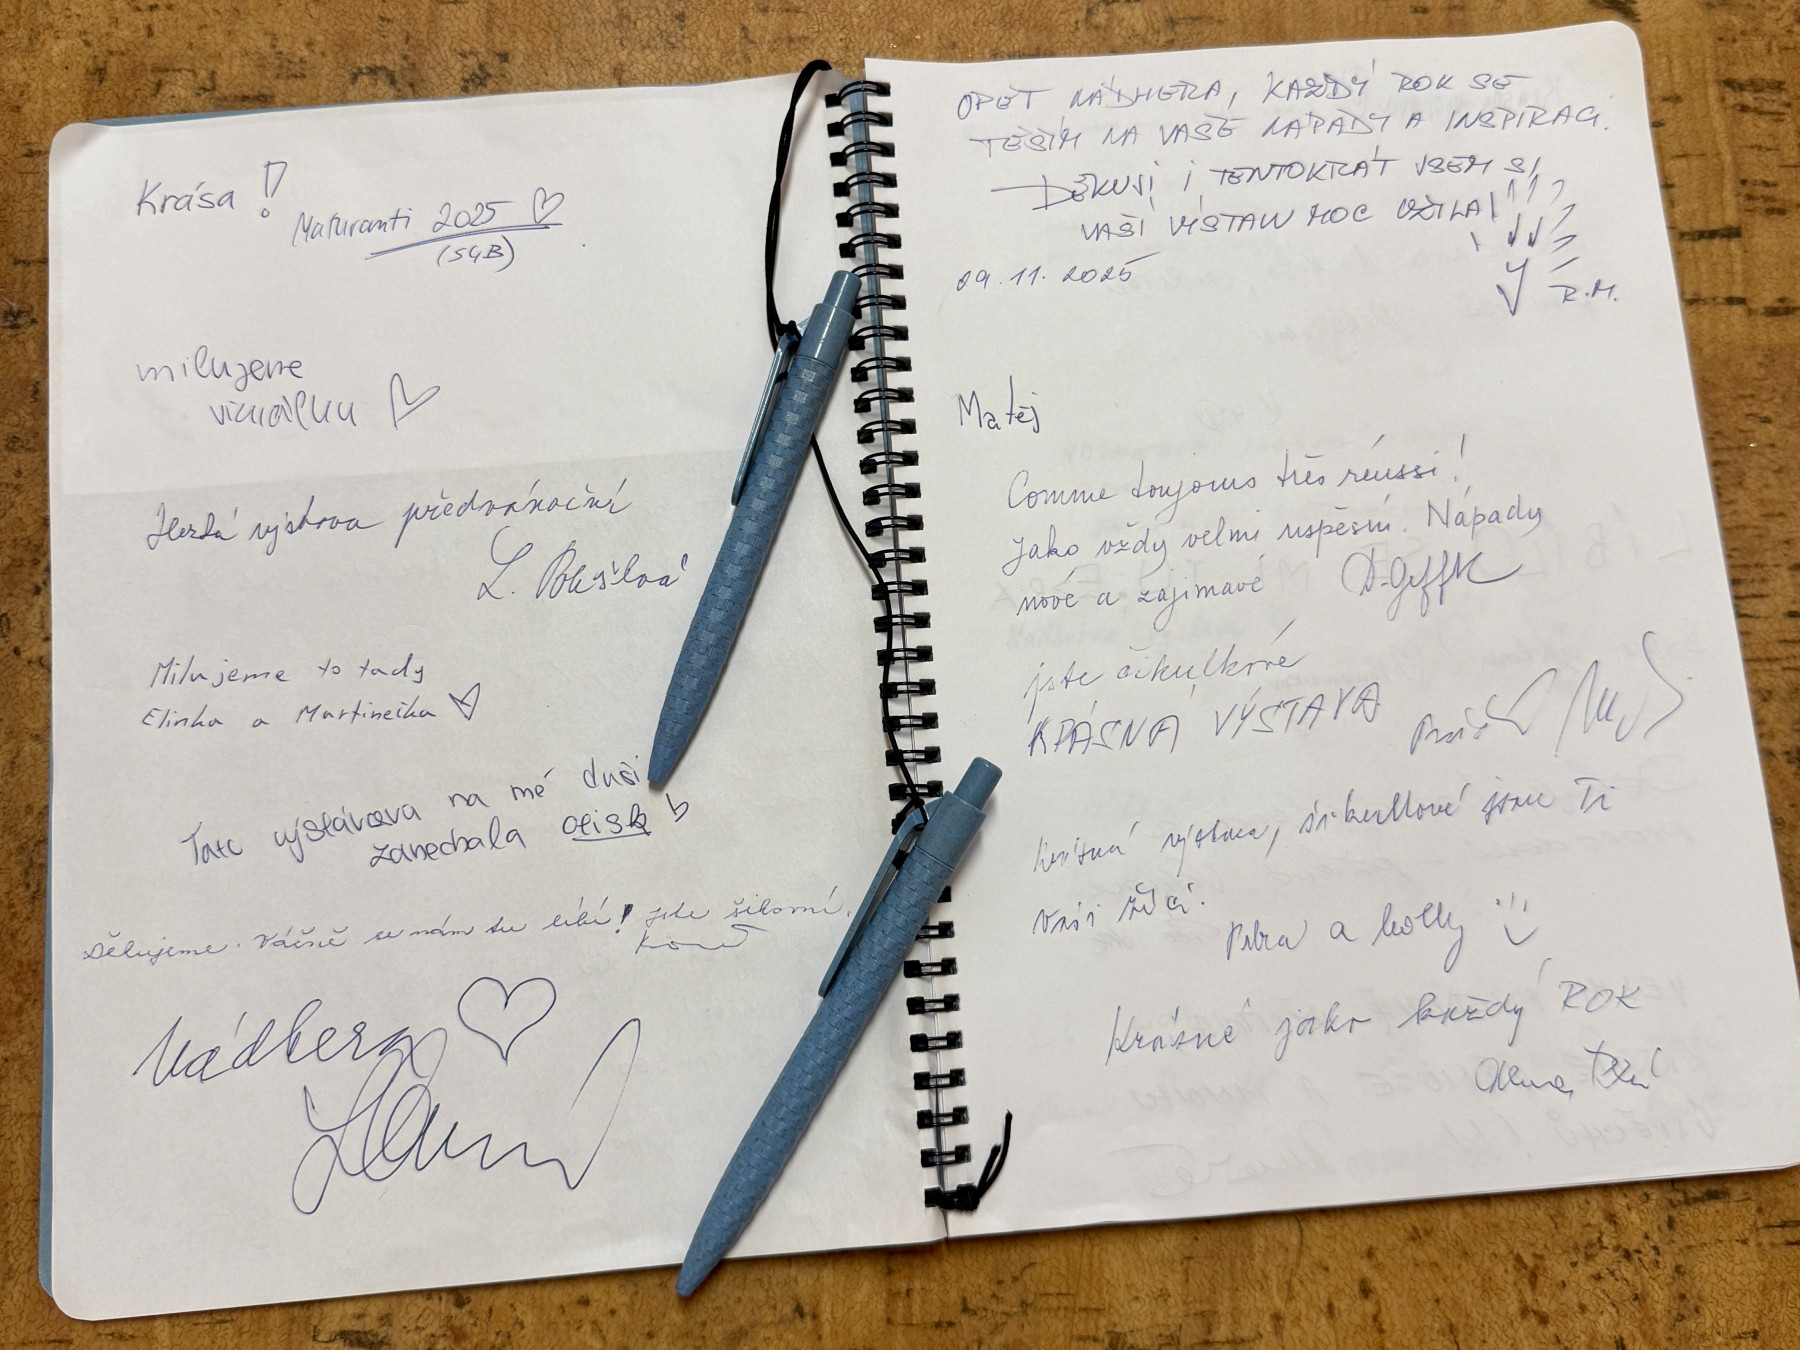 Krása!
Maturanti 2025
(SGB)
milujeme
vizuálku
Hezká výstava předvánoční
L.
Milujeme to tady
Elinka a Martinečka
Tato výstava na mé duši
zanechala otisk
Děkujeme. Vážně se nám tu líbí! Jste šikovní.
Nádhera
OPĚT NÁDHERA, KAŽDÝ ROK SE
TĚŠÍM NA VAŠE NÁPADY A INSPIRACI.
DĚKUJI I TENTOKRÁT JSEM SI
VAŠI VÝSTAVU MOC UŽILA!
29.11.2025
R.M.
Matěj
Comme toujours très réussi!
Jako vždy velmi úspěšní. Nápady
nové a zajímavé
jste šikulkové
KRÁSNÁ VÝSTAVA
Krásná výstava, šikulkové jsou Ti
Vaši žáci.
a holky
Krásné jako každý ROK